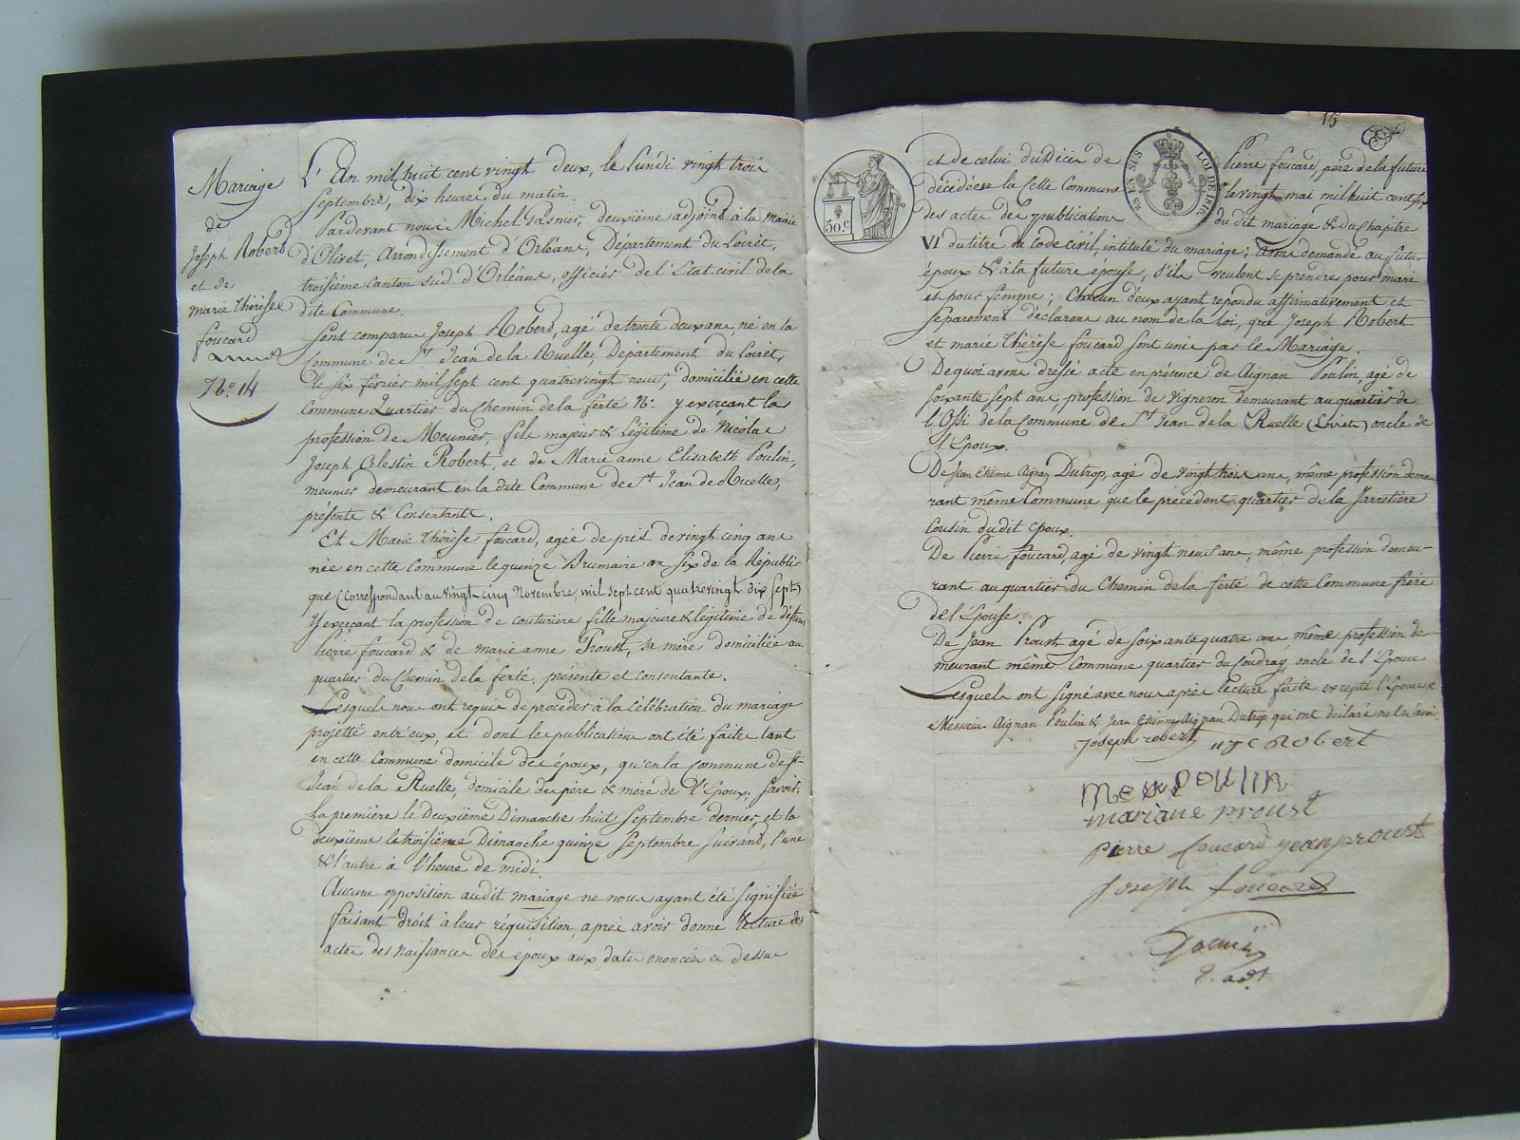 Mariage
de
Joseph Roberd
et de
marie thérèse
foucard
N.o 14
L'An mil huit cent vingt deux, le lundi vingt trois
Septembre, dix heures du matin.
Pardevant nous Michel Gasnier, deuxième adjoint à la mairie
d'Olivet, Arrondissement d'Orléans, Département du Loiret,
troisième Canton sud d'Orléans, officier de l'Etat civil de la
dite Commune.
Sont comparus Joseph Roberd, agé de trente deux ans, né en la
Commune de St Jean de la Ruelle, Département du Loiret,
le six fevrier mil sept cent quatrevingt neuf, domicilié en cette
Commune Quartier du Chemin de la ferté N.o y exerçant la
profession de Meunier, fils majeur & légitime de Nicolas
Joseph Celestin Robert, et de Marie anne Elisabeth Poulin,
meunier demeurant en la dite Commune de St Jean de Ruelle,
présents & Consentants.
Et Marie thérèse foucard, agée de près de vingt cinq ans
née en cette Commune le quinze Brumaire an six de la Républi-
que (Correspondant au vingt cinq Novembre, mil sept cent quatrevingt dix sept)
y exerçant la profession de couturière fille majeure & légitime de défunt
Pierre foucard & de marie anne Proust, sa mère domiciliée au
quartier du Chemin de la ferté, présente et consentante.
Lesquels nous ont requis de procéder à la célébration du mariage
projetté entr'eux, et dont les publications ont été faites tant
en cette Commune domicile des époux, qu'en la Commune de St
Jean de la Ruelle, domicile des père & mère de l'Epoux, savoir,
la première le Deuxième Dimanche huit Septembre dernier, et la
deuxième le troisième Dimanche quinze Septembre suivant, l'une
& l'autre à l'heure de midi.
Aucune opposition audit mariage ne nous ayant été signifiée
faisant droit à leur réquisition, après avoir donné lecture des
actes des Naissances des époux aux dates enoncés ci dessus
15
50 c
LOI DE 1816
et de celui du Décès de Pierre foucard, père de la future
décédé en la Cette Commune le vingt mai mil huit cent
des actes de publications du dit mariage & du chapitre
VI du titre du Code civil, intitulé du mariage, avons demandé au futur
époux & à la future épouse, s'ils veulent se prendre pour mari
et pour femme; Chacun d'eux ayant repondu affirmativement et
separement déclarons au nom de la Loi, que Joseph Robert
et marie thérèse foucard sont unis par le Mariage.
De quoi avons dressé acte en présence de Aignan Poulin, agé de
soixante sept ans profession de vigneron demeurant au quartier de
l'Ossi de la Commune de St Jean de la Ruelle (Loiret) oncle de
l'Epoux.
De Jean Etienne Aignan Dutrop, agé de vingt trois ans, même profession demeu-
rant même Commune que le precédent quartier de la Jarretière
Cousin du dit Epoux.
De Pierre foucard, agé de vingt neuf ans, même profession demeu-
rant au quartier du Chemin de la ferté de cette Commune frère
de l'Epouse.
De Jean Proust agé de soixante quatre ans, même profession de
meurant même Commune quartier du Coudray oncle de l'Epouse
Lesquels ont signé avec nous après lecture faite excepté l'Epouse
Messieurs Aignan Poulin & Jean Etienne Aignan Dutrop qui ont déclaré ne le savoir
Joseph robert njc Robert
me poulin
mariane Proust
pierre foucard jean proust
Joseph foucard
Gasnier
2. adt